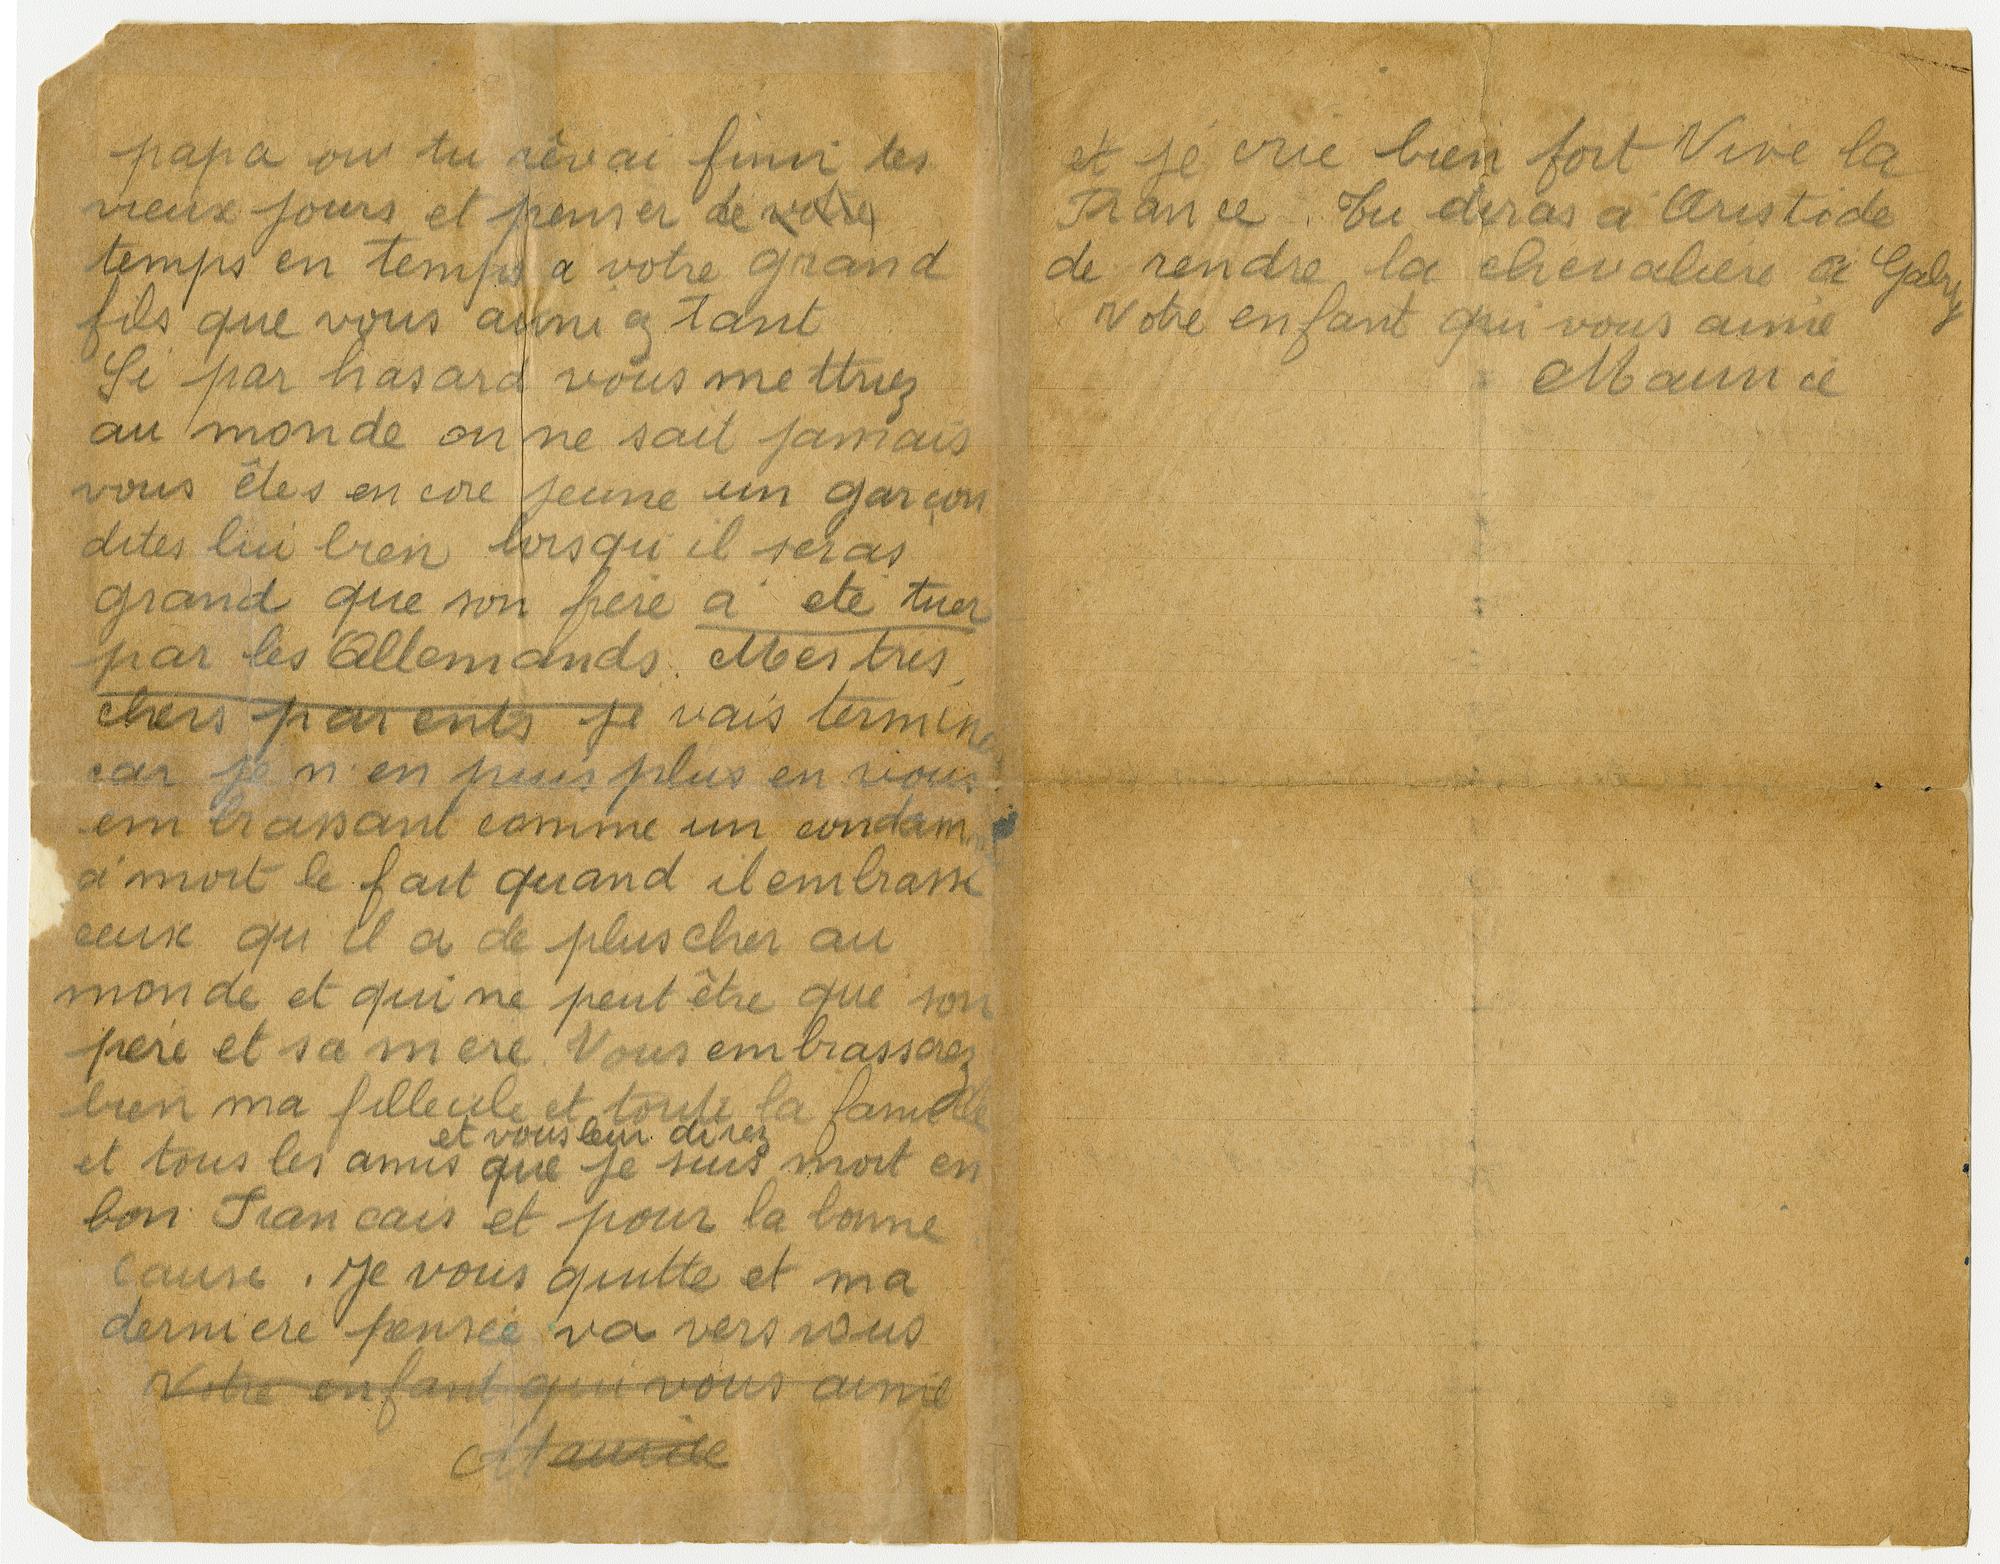 papa ou tu rêvai finir tes
vieux jours et penser de votre
temps en temps a votre grand
fils que vous aimiez tant
Si par hasard vous mettriez
au monde on ne sait jamais
vous êtes encore jeune un garçon
dites lui bien lorsqu'il seras
grand que son frere a été tuer
par les Allemands. Mes tres
chers parents je vais terminer
car je n'en puis plus en vous
embrassant comme un condamn
à mort le fait quand il embrasse
ceux qu'il a de plus cher au
monde et qui ne peut être que son
pere et sa mere. Vous embrasserez
bien ma filleule et toute la famille
et vous leur direz
et tous les amis que je suis mort en
bon Francais et pour la bonne
cause. Je vous quitte et ma
derniere pensée va vers vous
Votre enfant qui vous aime
Maurice
et je crie bien fort Vive la
France. Tu diras a Aristide
de rendre la chevaliere à Gaby
Votre enfant qui vous aime
Maurice